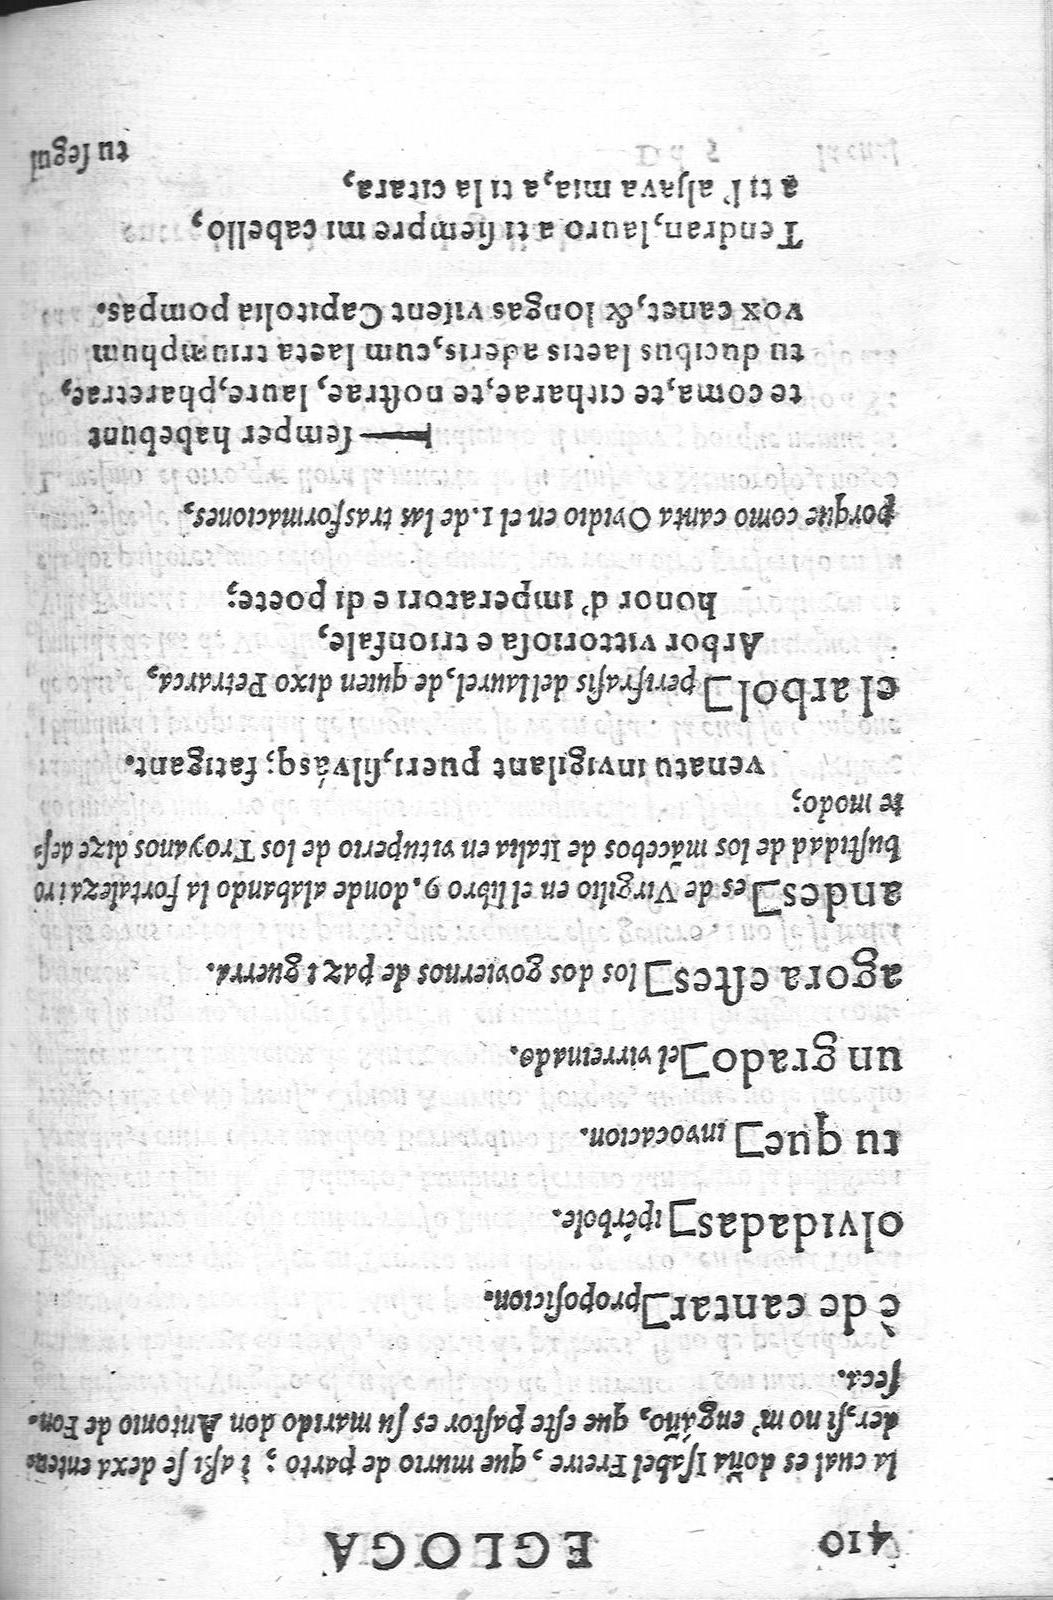 410 EGLOGA
la cual es doña Isabel Freire, que murio de parto; i aßi se dexa enten-
der, si no m' engáño, que este pastor es su marido don Antonio de Fon-
seca.
è de cantar] proposicion.
olvidadas] ipérbole.
tu que] invocacion.
un grado] el virreinado.
agora estes] los dos goviernos de paz i guerra.
andes] es de Virgilio en el libro 9. donde alabando la fortaleza i ro
bustidad de los mãcebos de Italia en vituperio de los Troyanos dize des-
te modo;
venatu invigilant pueri, silvásq; fatigant.
el arbol] perifrasis del laurel, de quien dixo Petrarca,
Arbor vittoriosa e trionfale,
honor d' imperatori e di poete;
porque como canta Ovidio en el 1. de las trasformaciones,
— semper habebunt
te coma, te citharae, te nostrae, laure, pharetrae,
tu ducibus laetis aderis, cum laeta triumphum
vox canet, & longas visent Capitolia pompas.
Tendran, lauro a ti siempre mi cabello,
a ti l' aljava mia, a ti la citara,
tu segui